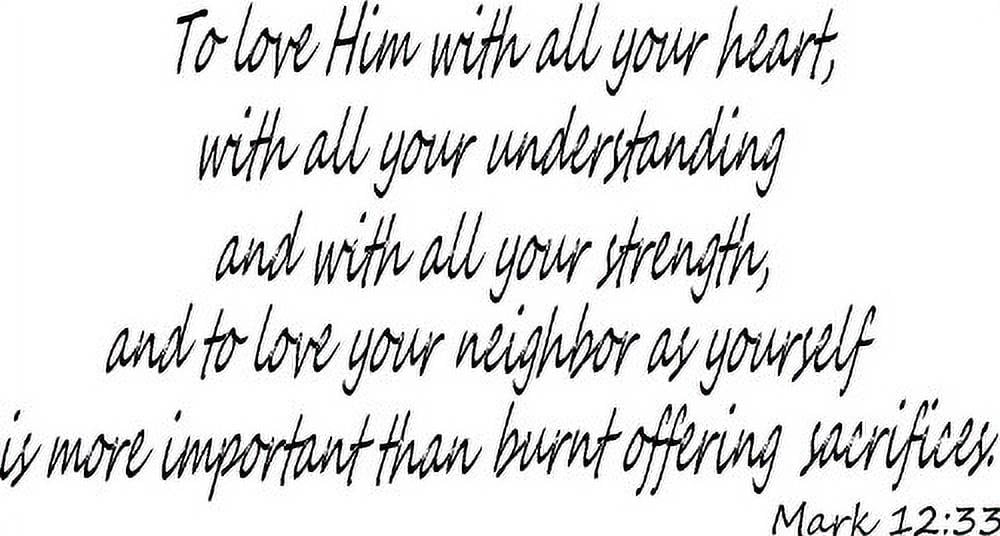 To love Him with all your heart,
with all your understanding
and with all your strength,
and to love your neighbor as yourself
is more important than burnt offering sacrifices.
Mark 12:33